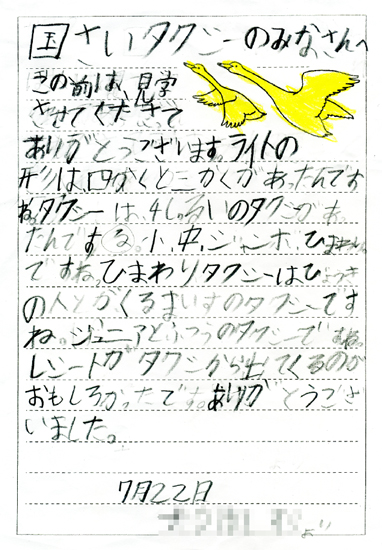 国さいタクシーのみなさんへ
この前は、見学
させてくださて
ありがとうございます。ライトの
形は、四かくと三かくがあったんです
ね。タクシーは、4しゅるいのタクシーがあっ
たんですね。小、中、ジャンボ、ひまわり
ですね。ひまわりタクシーはびょうき
の人とかくるまいすのタクシーです
ね。ジュニアとふつうのタクシーですね。
レシートがタクシーから出てくるのが
おもしろかったです。ありがとうござ
いました。
7月22日
より